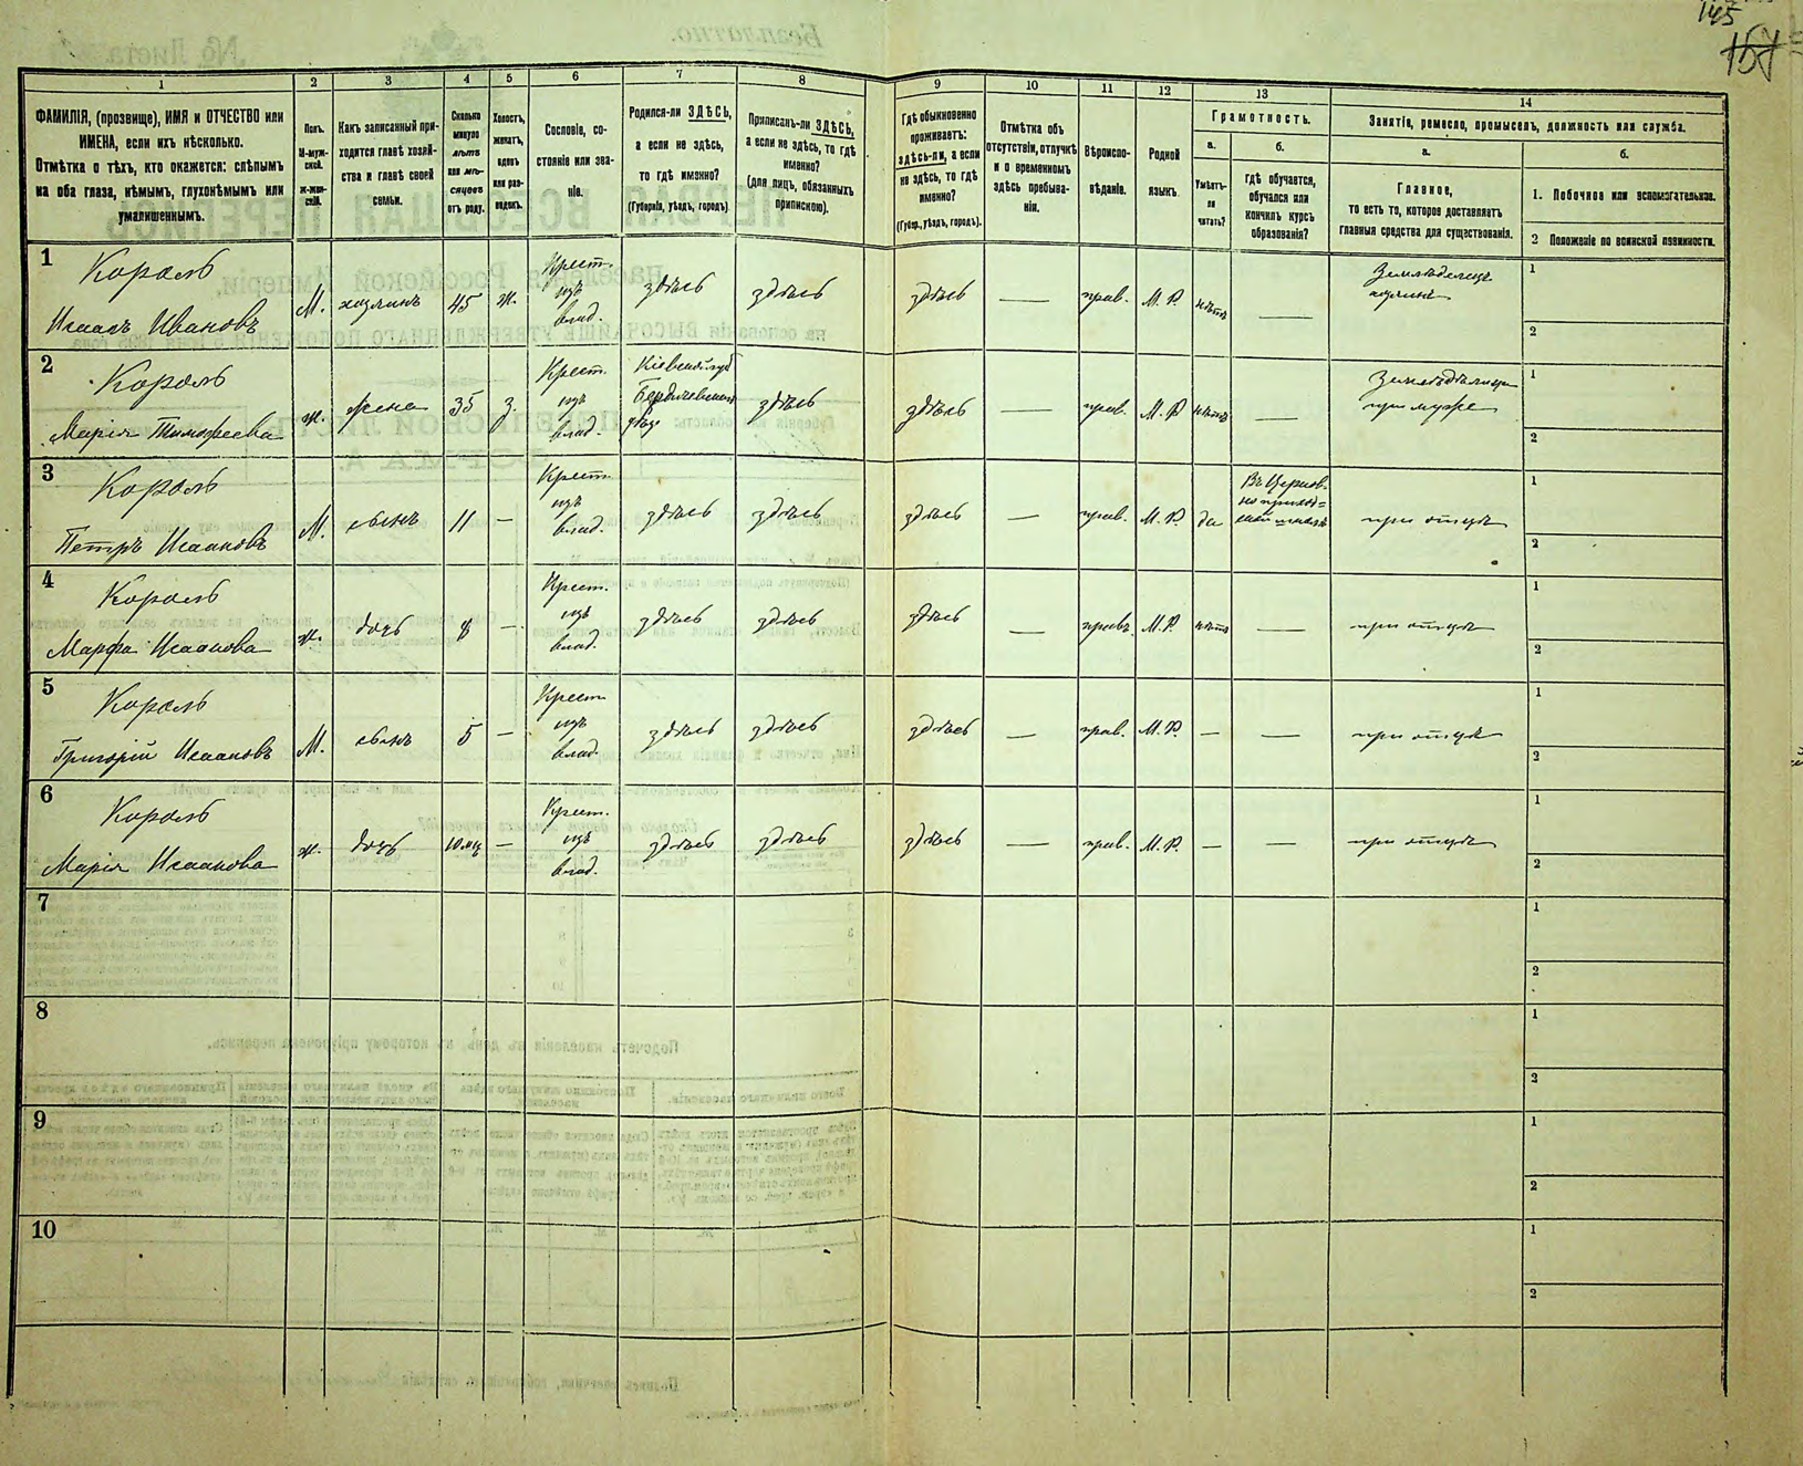 145
157
1
2
3
4
5
6
7
8
9
10
11
12
13
14
ФАМИЛІЯ, (прозвище), ИМЯ и ОТЧЕСТВО или
ИМЕНА, если ихъ нѣсколько.
Отмѣтка о тѣхъ, кто окажется: слѣпымъ
на оба глаза, нѣмымъ, глухонѣмымъ или
умалишеннымъ.
Полъ.
М-муж-
ской.
Ж-жен-
скій.
Какъ записанный при-
ходится главѣ хозяй-
ства и главѣ своей
семьи.
Сколько
минуло
лѣтъ
или мѣ-
сяцевъ
отъ роду.
Холостъ,
женатъ,
вдовъ
или раз-
веденъ.
Сословіе, со-
стояніе или зва-
ніе.
Родился-ли ЗДѢСЬ,
а если не здѣсь,
то гдѣ именно?
(Губернія, уѣздъ, городъ)
Приписанъ-ли ЗДѢСЬ,
а если не здѣсь, то гдѣ
именно?
(для лицъ, обязанныхъ
припискою).
Гдѣ обыкновенно
проживаетъ:
здѣсь-ли, а если
не здѣсь, то гдѣ
именно?
(Губер., уѣздъ, городъ).
Отмѣтка объ
отсутствіи, отлучкѣ
и о временномъ
здѣсь пребыва-
ніи.
Вѣроиспо-
вѣданіе.
Родной
языкъ.
Грамотность.
а.
Умѣетъ-
ли
читать?
б.
Гдѣ обучается,
обучался или
кончилъ курсъ
образованія?
Занятіе, ремесло, промыселъ, должность или служба.
а.
Главное,
то есть то, которое доставляетъ
главныя средства для существованія.
б.
1. Побочное или вспомогательное.
2 Положеніе по воинской повинности.
1
Король
Исаакъ Ивановъ
М.
хозяинъ
45
ж.
Крест.
изъ
влад.
здѣсь
здѣсь
здѣсь
—
прав.
М. Р.
нѣтъ
—
Земледѣлецъ
хозяинъ
1
2
2
Король
Марія Тимофеева
ж.
жена
35
з.
Крест.
изъ
влад.
Кіевской губ
Бердичевскаго
уѣзда
здѣсь
здѣсь
—
прав.
М. Р
нѣтъ
—
Земледѣлица
при мужѣ
1
2
3
Король
Петръ Исааковъ
М.
сынъ
11
—
Крест.
изъ
влад.
здѣсь
здѣсь
здѣсь
—
прав.
М. Р.
да
Въ Церков-
но приход-
ской школѣ
при отцѣ
1
2
4
Король
Марфа Исаакова
ж.
дочь
8
—
Крест.
изъ
влад.
здѣсь
здѣсь
здѣсь
—
прав.
М. Р.
нѣтъ
—
при отцѣ
1
2
5
Король
Григорій Исааковъ
М.
сынъ
5
—
Крест
изъ
влад.
здѣсь
здѣсь
здѣсь
—
прав.
М. Р.
—
—
при отцѣ
1
2
6
Король
Марія Исаакова
ж.
дочь
10 мц
—
Крест.
изъ
влад.
здѣсь
здѣсь
здѣсь
—
прав.
М. Р.
—
—
при отцѣ
1
2
7
1
2
8
1
2
9
1
2
10
1
2